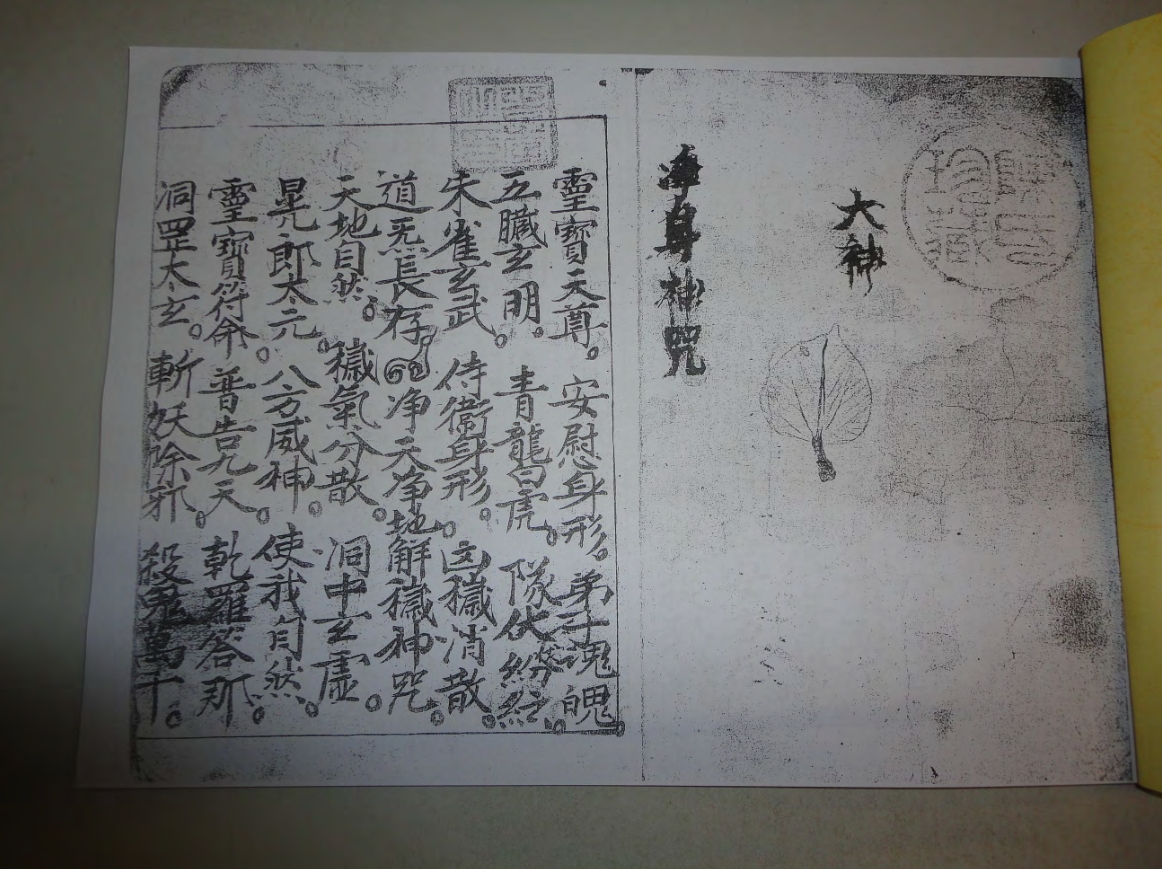 珍藏
大神
淨身神咒
靈寶天尊。安慰身形。弟子魂魄。
五臟玄明。青龍白虎。隊伏紛紜。
朱雀玄武。侍衛身形。凶穢消散。
道炁長存。净天净地解穢神咒。
天地自然。穢氣分散。洞中玄虛。
晃郎太元。八方威神。使我自然。
靈寶符命。普告九天。乾羅答那。
洞罡太玄。斬妖除邪。殺鬼萬千。